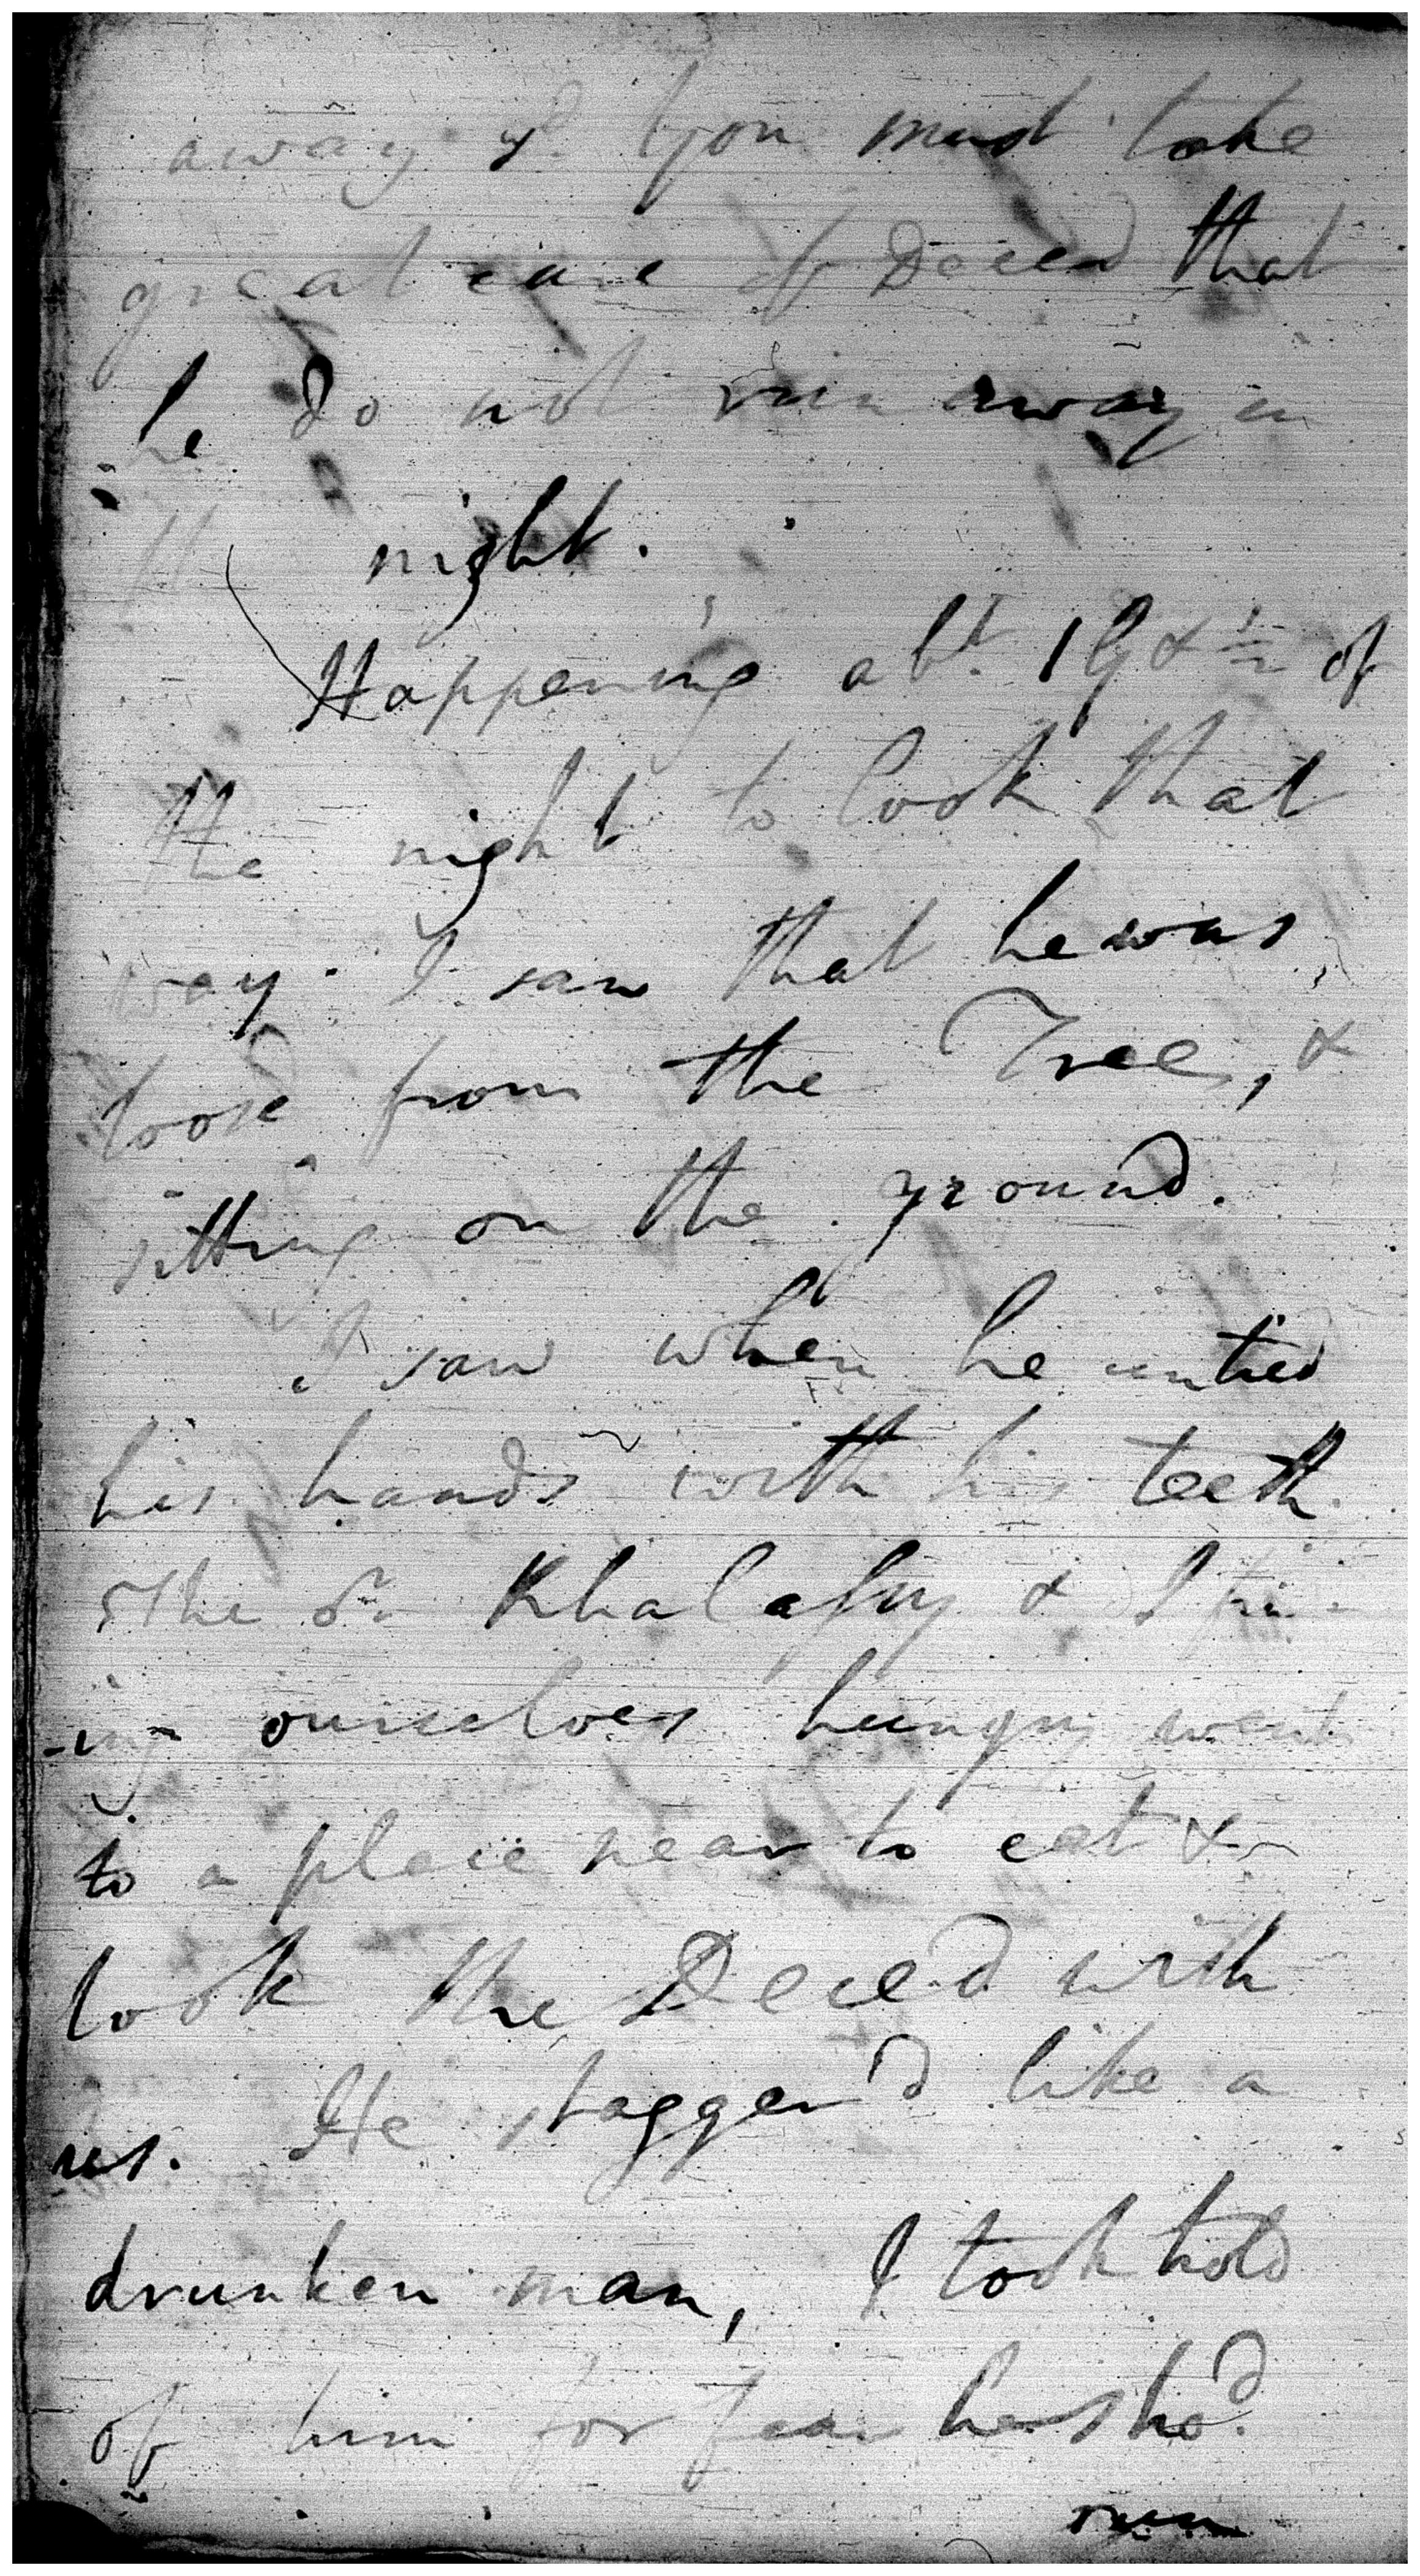 away & You must take
great care of Deced that
he do not run away in
night.
Happening abt. 1 G & ½ of
the night to look that
way. I saw that he was
loose from the Tree, &
sitting on the ground.
I saw when he untied
his hands with his teeth.
The Khalassy & I
-ing ourselves hungry went
to a place near to eat &
took the Deced with
us. He stagger'd like a
drunken man, I took hold
of him for fear he shod.
run